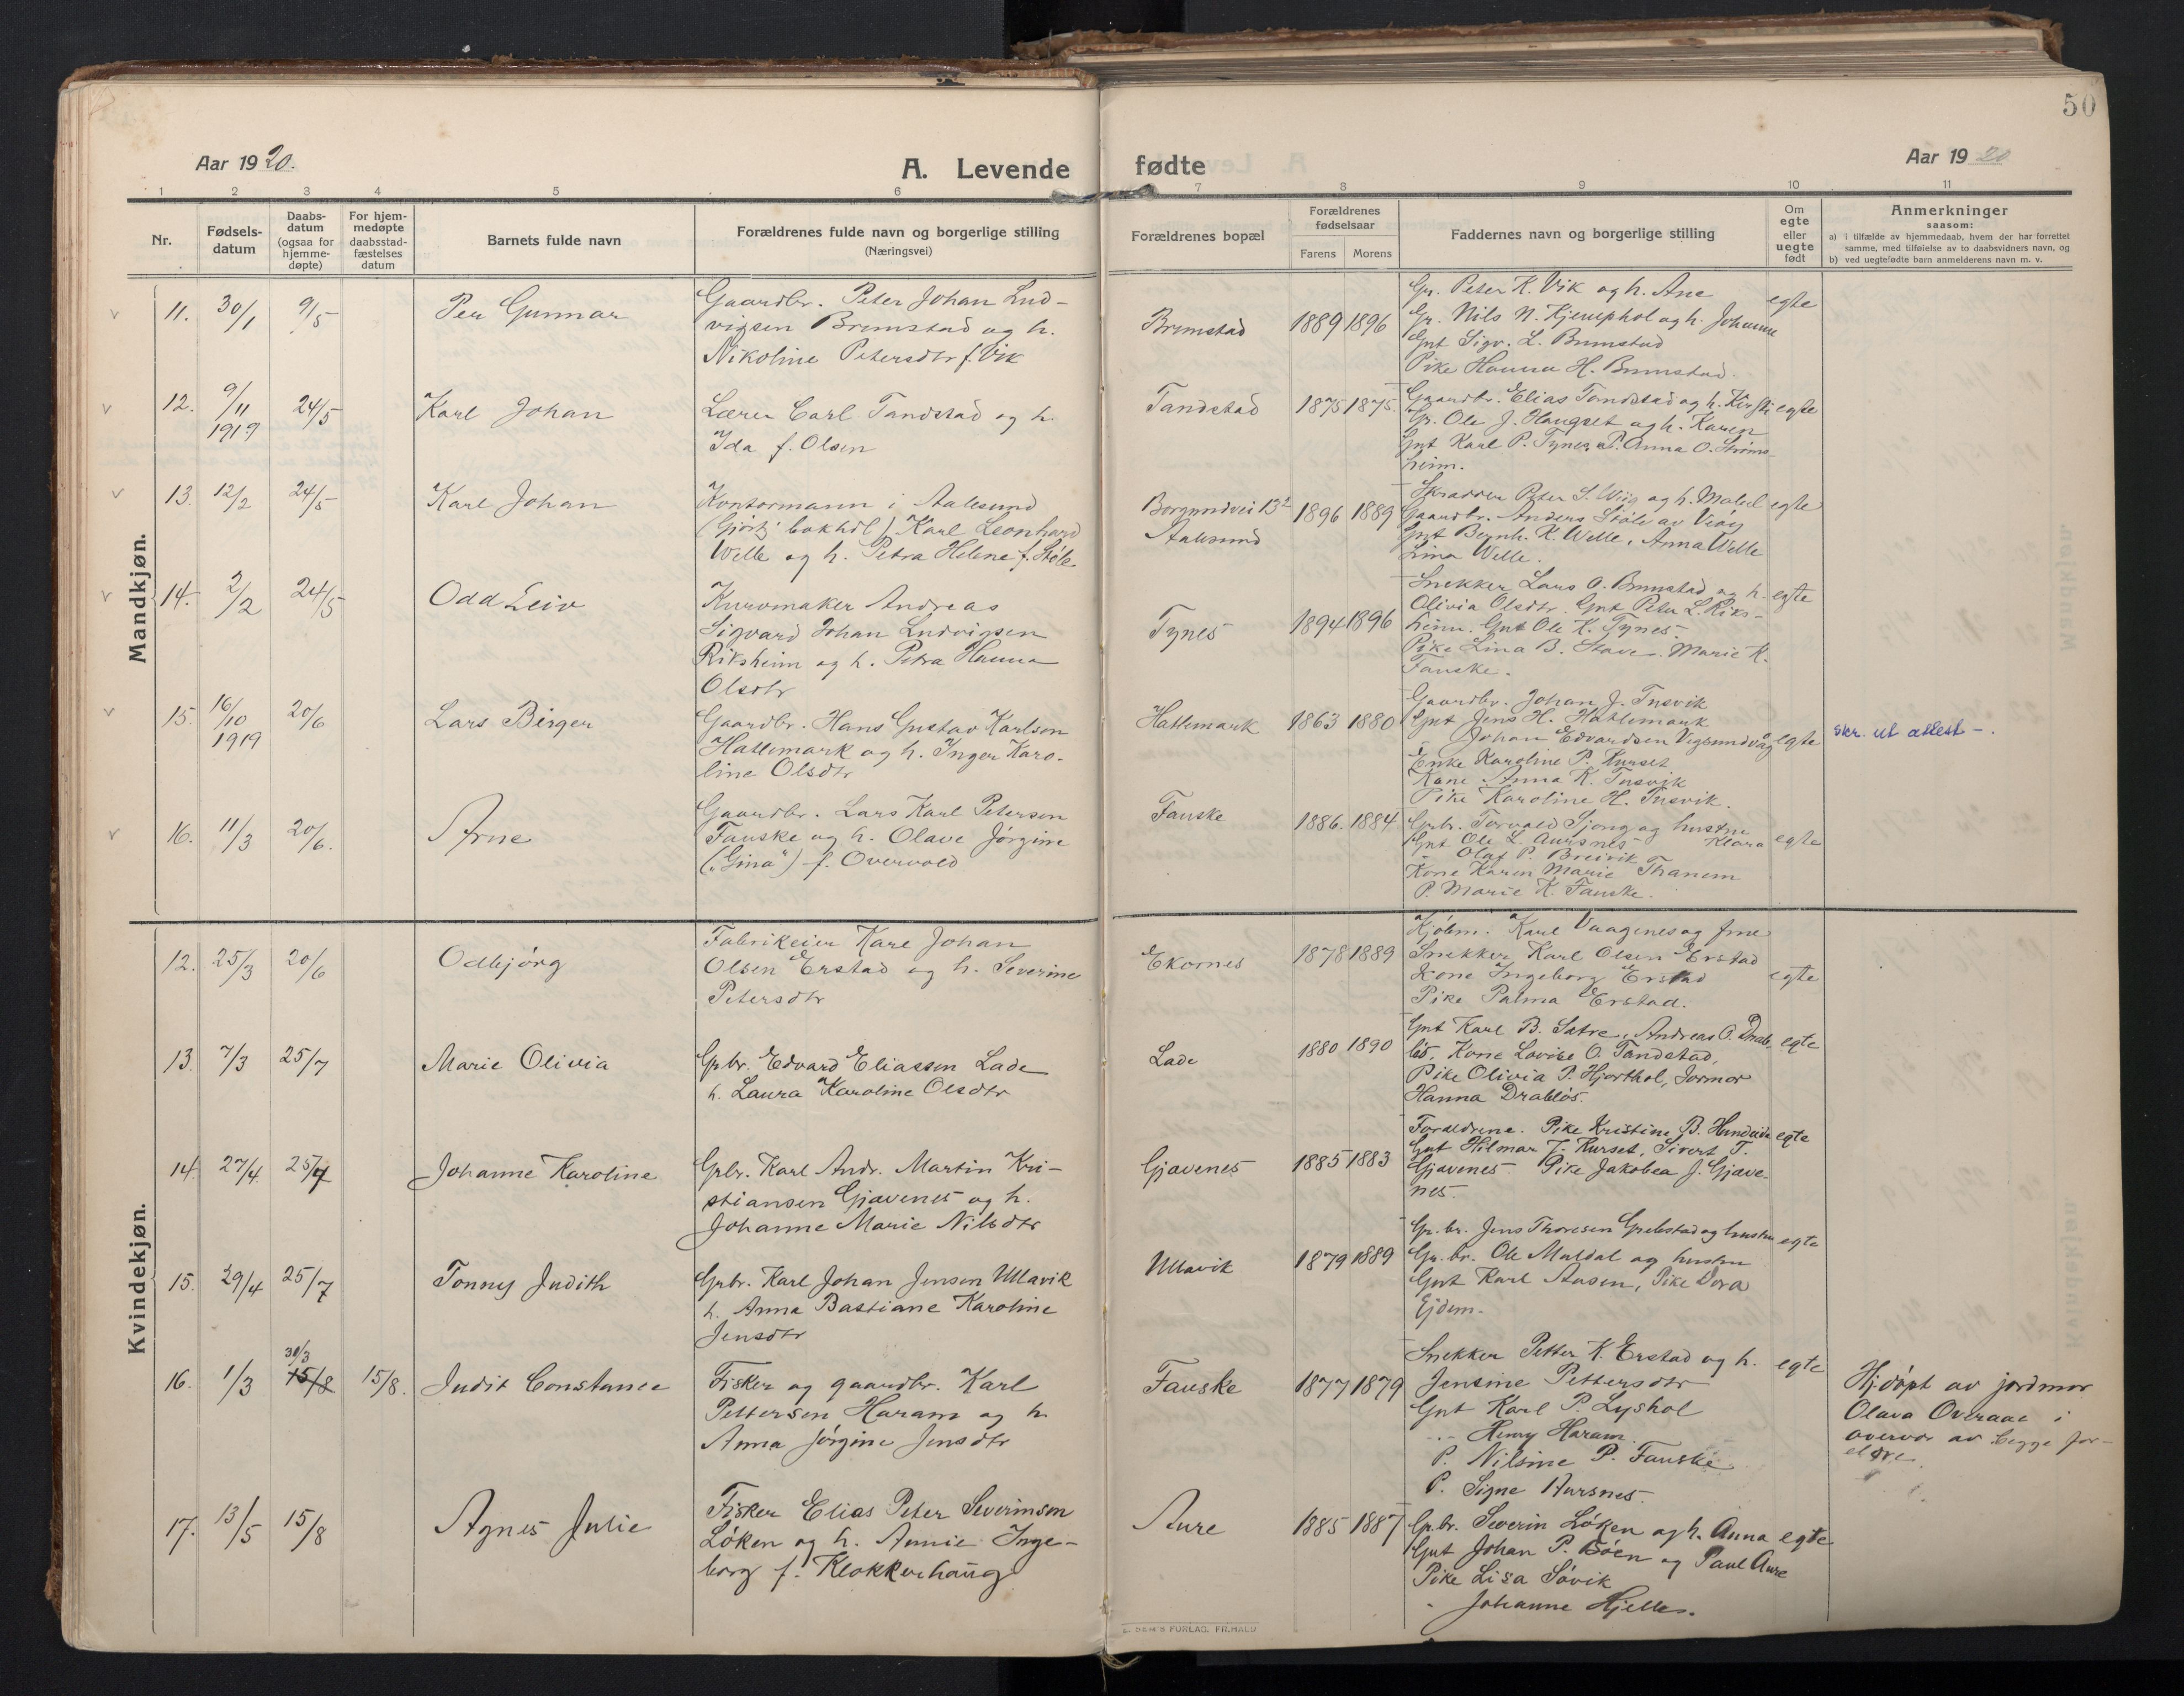 50
Aar 1920.
A. Levende fødte
Aar 1920
1 2 3 4 5 6 7 8 9 10 11
Nr.
Fødsels-
datum
Daabs-
datum
(ogsaa for
hjemme-
døpte)
For hjem-
medøpte
daabsstad-
fæstelses
datum
Barnets fulde navn
Forældrenes fulde navn og borgerlige stilling
(Næringsvei)
Forældrenes bopæl
Forældrenes
fødselsaar
Farens Morens
Faddernes navn og borgerlige stilling
Om
egte
eller
uegte
født
Anmerkninger
saasom:
a) i tilfælde av hjemmedaab, hvem der har forrettet
samme, med tilføielse av to daabsvidners navn, og
b) ved uegtefødte barn anmelderens navn m. v.
Mandkjøn.
11. 30/1 9/5 Per Gunnar
Gaardbr. Peter Johan Lud-
vigsen Brunstad og h.
Nikoline Petersdtr f. Vik
Brunstad 1889 1896
Gr. Peter K. Vik og h. Ane
Gr. Nils N. Hjemphol og h. Johanne
Gut Sigv. L. Brunstad
Pike Hanna H. Brunstad.
egte
12. 9/11 1919 24/5 Karl Johan
Lærer Carl Tandstad og h.
Ida f. Olsen
Tandstad 1875 1875.
Gaardbr. Elias Tandstad og h. Kirsti
Gr. Ole J. Haugset og h. Karen
Gut Karl P. Tynes, P. Anna O. Strøms-
heim.
egte
13. 12/2 24/5 Karl Johan
Kontormann i Aalesund
(Gjørtz bokhdl) Karl Leonhard
Welle og h. Petra Helene f. Støle
Borgundvei 132
Aalesund
1896 1889
Skrædder Peter S. Wiig og h. Makel
Gaardbr. Anders Støle av Viøy
Gut Bernh. K. Welle, Anna Welle
Lina Welle.
egte
14. 2/2 24/5 Odd Leiv
Kurvmaker Andreas
Sigvard Johan Ludvigsen
Riksheim og h. Petra Hanna
Olsdtr
Tynes 1894 1896
Snekker Lars O. Brunstad og h.
Olivia Olsdtr. Gut Peter L. Riks-
heim. Gut Ole K. Tynes.
Pike Lina B. Stave. Marie K.
Fauske.
egte
15. 16/10 1919 20/6 Lars Birger
Gaardbr. Hans Gustav Karlsen
Hatlemark og h. Inger Karo-
line Olsdtr
Hatlemark 1863 1880
Gaardbr. Johan J. Tusvik
Gut Jens H. Hatlemark
" Johan Edvardsen Vegsundvåg
Enke Karoline P. Kurset
Kone Anna K. Tusvik
Pike Karoline H. Tusvik.
egte
skr. ut attest -.
16. 11/3 20/6. Arne
Gaardbr. Lars Karl Petersen
Fauske og h. Olave Jørgine
("Gina") f. Overvold
Fauske 1886. 1884
Grbr. Torvald Sjong og hustru
Gut Ole L. Aursnes Klara
" Olaf P. Breivik
Kone Karen Marie Thanem
P. Marie K. Fauske.
egte
Kvindekjøn.
12. 25/3 20/6 Odbjørg
Fabrikeier Karl Johan
Olsen Erstad og h. Severine
Petersdtr
Ekornes 1878 1889
Kjøbm. Karl Vaagenes og frue
Snekker Karl Olsen Erstad
Kone Ingeborg Erstad
Pike Palma Erstad.
egte
13. 7/3 25/7 Marie Olivia
Gbr. Edvard Eliassen Lade
h. Laura Karoline Olsdtr
Lade 1880 1890
Gut Karl B. Sætre, Andreas O. Drab-
løs, Kone Lovise O. Tandstad,
Pike Olivia P. Hjorthol, Jormor
Hanna Drabløs.
egte
14. 27/4 25/7 Johanne Karoline
Grbr. Karl Andr. Martin Kri-
stiansen Gjævenes og h.
Johanne Marie Nilsdtr
Gjævenes 1885 1883
Forældrene. Pike Kristine B. Hundeide
Gut Hilmar J. Kurset, Sivert T.
Gjævenes Pike Jakobea J. Gjæve-
nes.
egte
15. 29/4 25/7 Tonny Judith
Grbr. Karl Johan Jensen Ullavik
h. Anna Bastiane Karoline
Jensdtr
Ullavik 1879 1889
Gr. br. Jens Thoresen Grebstad og hustru
Gr. br. Ole Muldal og hustru
Gut Karl Aasen, Pike Dora
Ejdem.
egte
16. 1/3 31/3 15/8 15/8. Judit Constance
Fisker og gaardbr. Karl
Pettersen Haram og h.
Anna Jørgine Jensdtr
Fauske 1877 1879
Snekker Petter K. Erstad og h.
Jensine Pettersdtr
Gut Karl P. Lyshol
" Henry Haram.
P. Nilsine P. Fauske
P. Signe Aursnes.
egte
Hj.døpt av jordmor
Olava Overaae i
overvær av begge for-
eldre.
17. 13/5 15/8 Agnes Julie
Fisker Elias Peter Severinsen
Løken og h. Annie Inge-
borg f. Klokkerhaug
Aure 1885 1887
Grbr. Severin Løken og h. Anna
Gut Johan P. Bøen og Paul Aure
Pike Lisa Søvik
" Johanne Hjelle.
egte
SEM'S FORLAG, FR.HALD